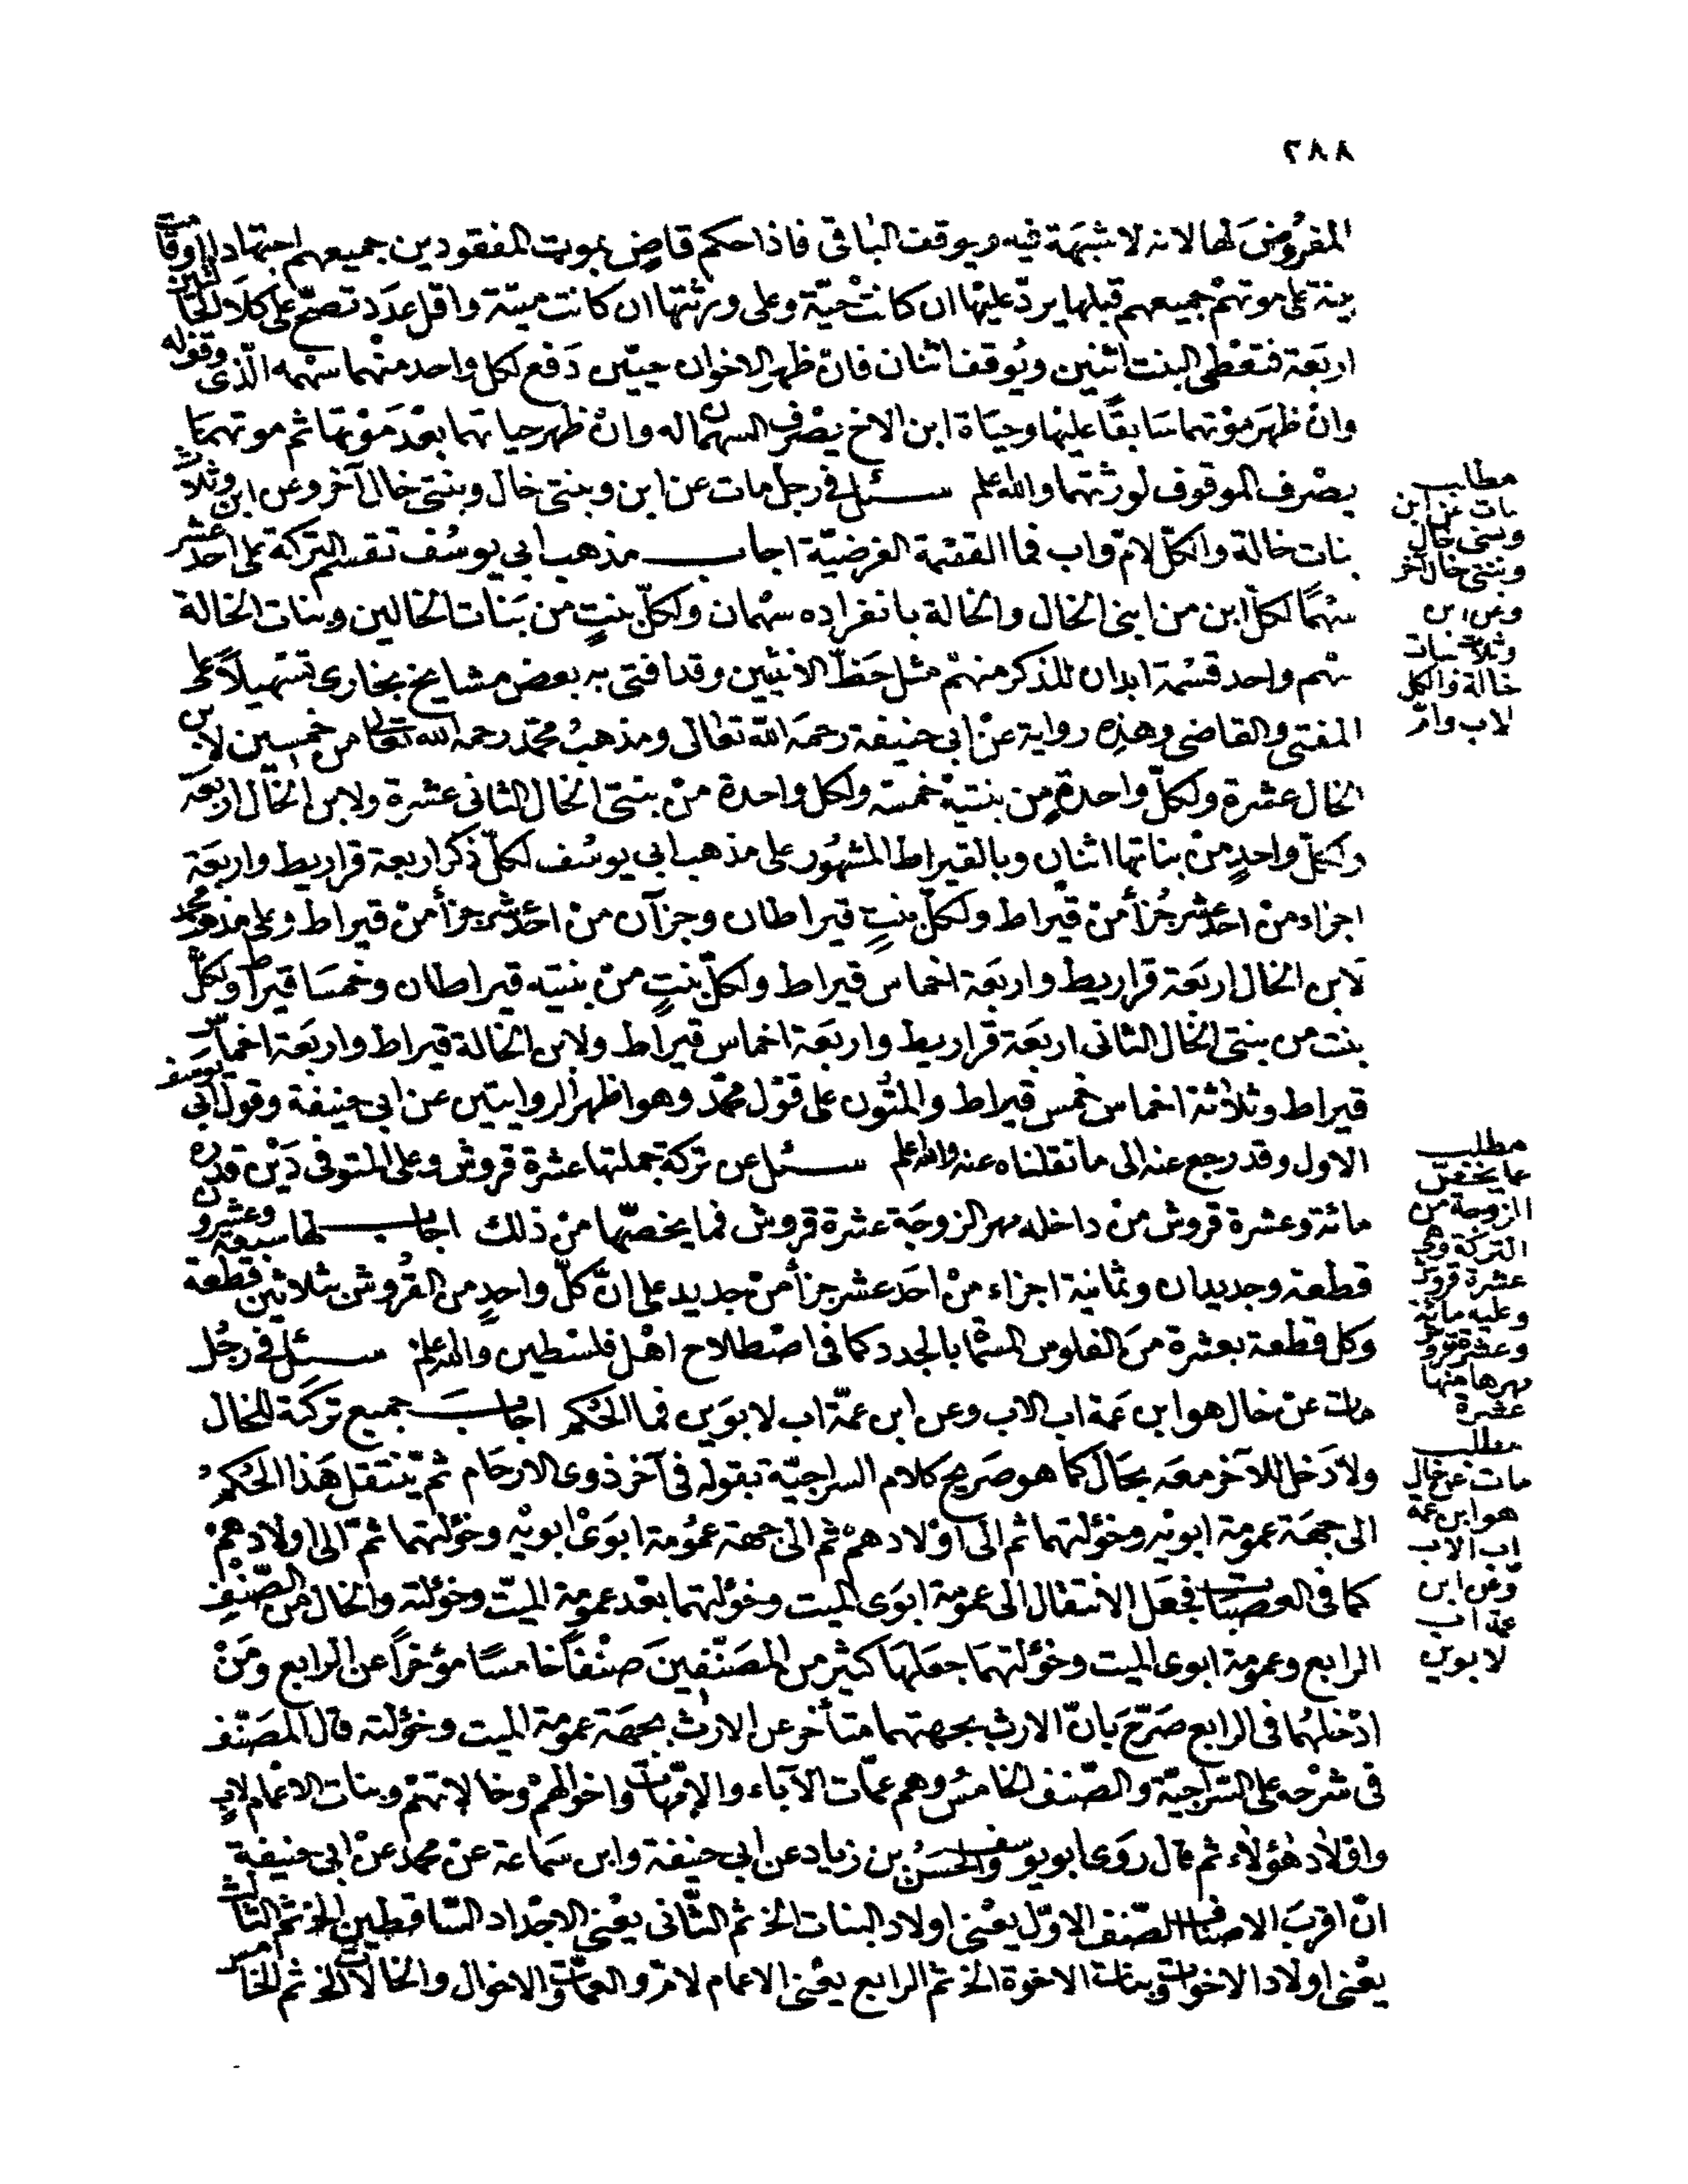 ٢٨٨
المفروض لها لانه لا شبهة فيه ويوقف الباقى فاذا حكم قاض بموت المفقودين جميعهم اجتهادا او قامت
بينة على موتهم جميعهم قبلها يرد عليها ان كانت حيّة وعلى ورثتها ان كانت ميتة واقل عدد تصحّ على كلا الحالتين
اربعة فتعطى البنت اثنين ويوقف اثنان فان ظهر الاخوان حيّين دفع لكل واحد منهما سهمه الّذى وقف له
وان ظهر موتهما سابقًا عليها وحياة ابن الاخ يصرف السهمان له وان ظهر حياتهما بعد موتها ثم موتهما
يصرف الموقوف لورثتهما والله اعلم سئل فى رجل مات عن ابن وبنتى خال وبنتى خال آخر وعن ابن وثلاث
بنات خالة والكلّ لام واب فما القسمة الفرضيّة اجاب مذهب ابى يوسف تقسم التركة على احد عشر
سهمًا لكلّ ابن من ابنى الخال والخالة بانفراده سهمان ولكلّ بنتٍ من بنات الخالين وبنات الخالة
سهم واحد قسمة ابدان للذكر منهم مثل حظّ الانثيين وقد افتى به بعض مشايخ بخارى تسهيلاً على
المفتى والقاضى وهذه رواية عن ابى حنيفة رحمه الله تعالى ومذهب محمّد رحمه الله تعالى من خمسين لابن
الخال عشرة ولكلّ واحدةٍ من بنتيه خمسة ولكل واحدة من بنتى الخال الثانى عشرة ولابن الخال اربعة
ولكلّ واحدٍ من بناتها اثنان وبالقيراط المشهور على مذهب ابى يوسف لكلّ ذكر اربعة قراريط واربعة
اجزاء من احد عشر جزأ من قيراط ولكلّ بنتٍ قيراطان وجزآن من احد عشر جزأ من قيراط وعلى مذهب محمد
لابن الخال اربعة قراريط واربعة اخماس قيراط ولكلّ بنتٍ من بنتيه قيراطان وخمسا قيراط ولكلّ
بنت من بنتى الخال الثانى اربعة قراريط واربعة اخماس قيراط ولابن الخالة قيراط واربعة اخماس
قيراط وثلاثة اخماس خمس قيراط والمتون على قول محمّد وهو اظهر الروايتين عن ابى حنيفة وقول ابى يوسف
الاول وقد رجع عنه الى ما نقلناه عنه والله اعلم سئل عن تركة جملتها عشرة قروش وعلى المتوفى دين قدره
مائة وعشرة قروش من داخله مهر الزوجة عشرة قروش فما يخصّها من ذلك اجاب لها سبعة وعشرون
قطعة وجديدان وثمانية اجزاء من احد عشر جزأ من جديد على انّ كلّ واحدٍ من القروش بثلاثين قطعة
وكل قطعة بعشرة من الفلوس المسمّا بالجدد كما فى اصطلاح اهل فلسطين والله اعلم سئل فى رجل
مات عن خال هو ابن عمة اب الاب وعن ابن عمّة اب لابوين فما الحكم اجاب جميع تركة للخال
ولا دخل للآخر معه بحال كما هو صريح كلام السراجيّة بقوله فى آخر ذوى الارحام ثم ينتقل هذا الحكم
الى جهة عمومة ابويه وخؤلتهما ثم الى اولادهم ثم الى جهة عمومة ابوى ابويه وخؤلتهما ثم الى اولادهم
كما فى العصبات فجعل الانتقال الى عمومة ابوى الميت وخؤلتهما بعد عمومة الميّت وخؤلته والخال من الصّنف
الرابع وعمومة ابوى الميت وخؤلتهما جعلها كثير من المصنّفين صنفًا خامسًا مؤخرًا عن الرابع ومن
ادخلهما فى الرابع صرّح بانّ الارث بجهتهما متأخر عن الارث بجهة عمومة الميت وخؤلته قال المصنّف
فى شرحه على السّراجيّة والصّنف الخامس وهم عمّات الآباء والامّهات واخوالهم وخالاتهم وبنات الاعمام لابٍ
واولاد هؤلاء ثم قال روى ابو يوسف والحسن بن زياد عن ابى حنيفة وابن سماعة عن محمد عن ابى حنيفة
انّ اقرب الاصناف الصّنف الاوّل يعنى اولاد البنات الخ ثم الثّانى يعنى الاجداد السّاقطين الخ ثم الثالث
يعنى اولاد الاخوات وبنات الاخوة الخ ثم الرابع يعنى الاعمام لام والعمات والاخوال والخالات الخ ثم الخامس
مطلب
مات عن ابن
وبنتى خال
وبنتى خال آخر
وعن ابن
وثلاث بنات
خالة والكل
لاب وام
مطلب
عما يخصّ
الزوجة من
التركة وهى
عشرة قروش
وعليه مائة
وعشرة قروش
مهرها منها
عشرة
مطلب
مات عن خال
هو ابن عمة
اب الاب
وعن ابن
عمة اب
لابوين